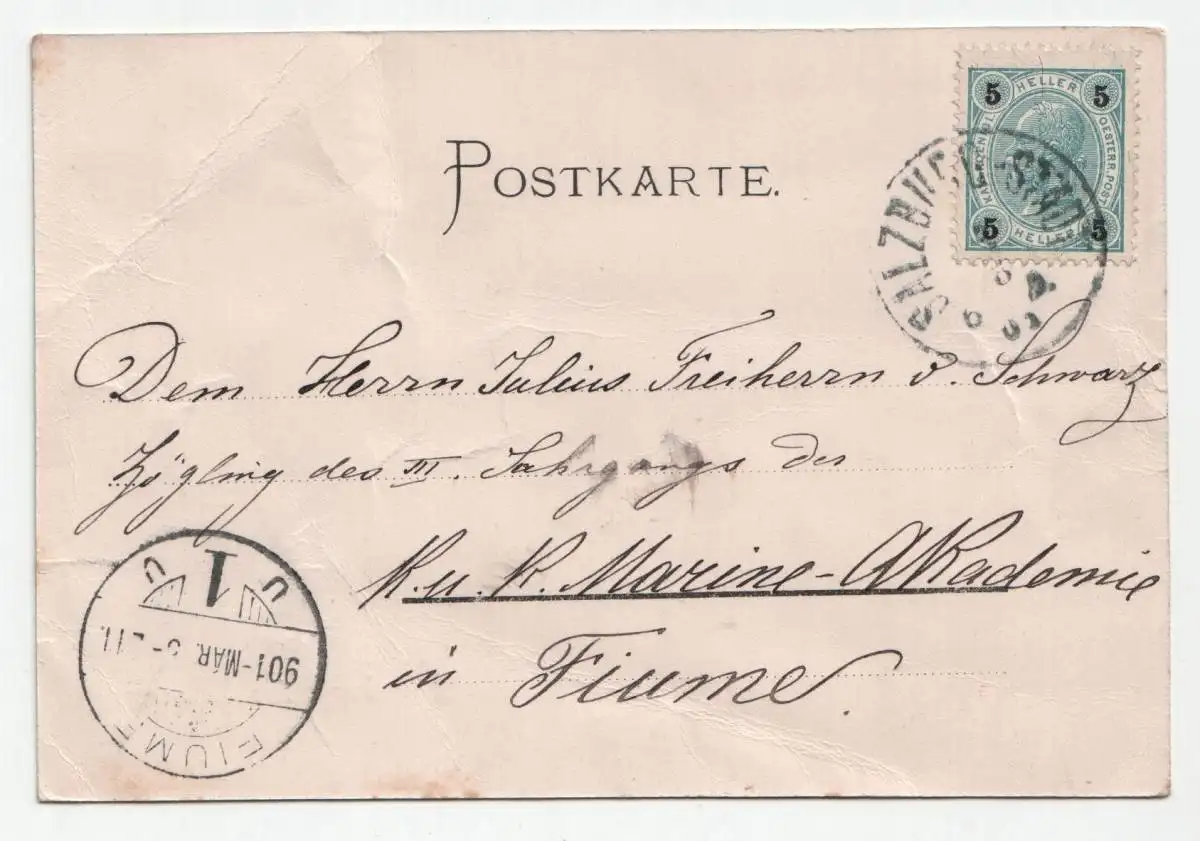 POSTKARTE.
5 HELLER 5
OESTERR. POST
5 HELLER 5
SALZBURG STADT
Dem Herrn Julius Freiherrn v. Schwarz
Zögling des III. Jahrgangs der
K. u. K. Marine-Akademie
in Fiume.
1
901-MÁR.
FIUME